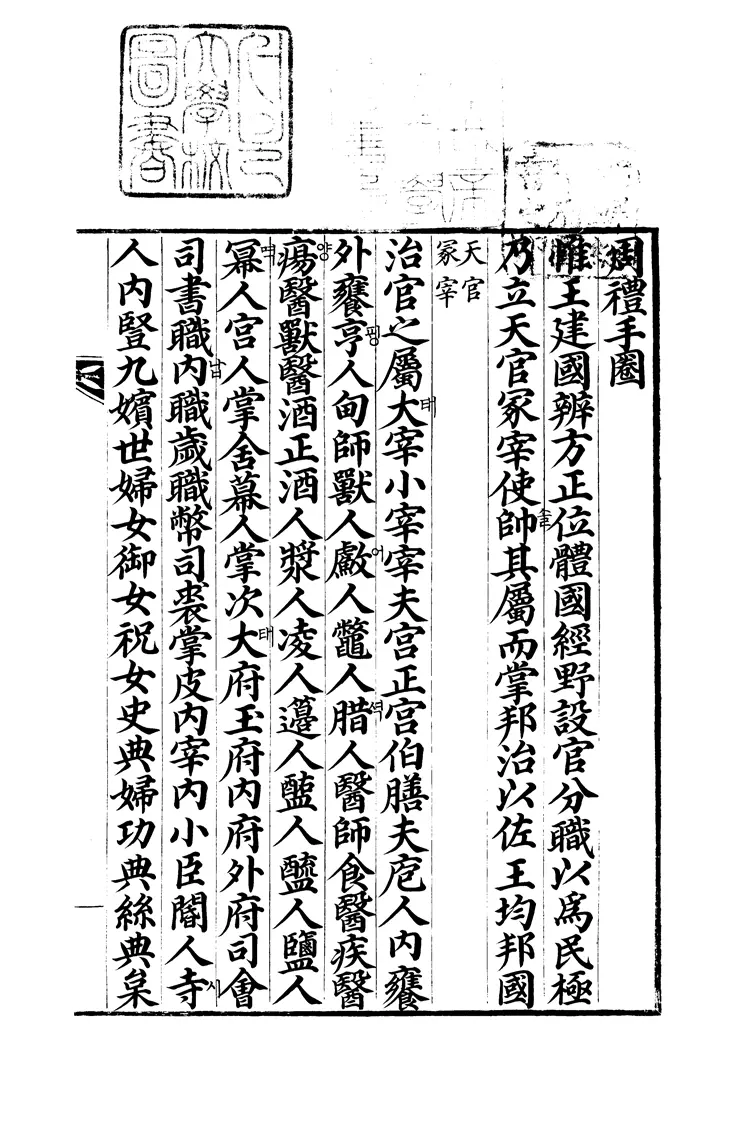 周禮手圈
惟王建國辨方正位體國經野設官分職以爲民極
乃立天官冢宰使帥솔其屬而掌邦治以佐王均邦國
天官
冢宰
治官之屬大태宰小宰宰夫宮正宮伯膳夫庖人內饔
外饔亨핑人甸師獸人䱷어人鼈人腊셕人醫師食醫疾醫
瘍양醫獸醫酒正酒人漿人凌人籩人醢人醯人鹽人
冪멱人宮人掌舍幕人掌次大태府玉府內府外府司會
司書職內납職歲職幣司裘掌皮內宰內小臣閽人寺시
人內豎九嬪世婦女御女祝女史典婦功典絲典枲
圖書
大學校